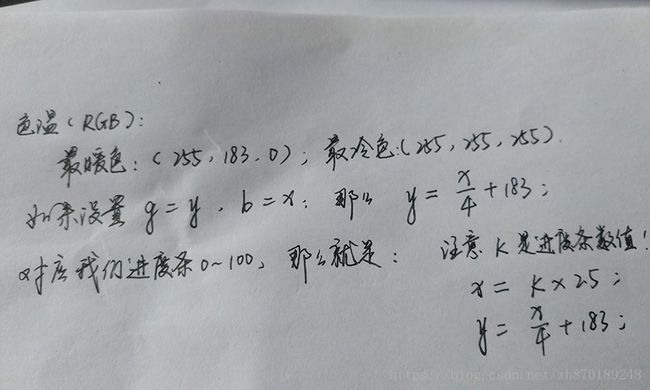 色温(RGB):
最暖色:(255,183,0);最冷色:(255,255,255).
如果设置 g=y,b=x;那么 y=x/4+183;
对应我们进度条0~100,那么就是: 注意 K是进度条数值!
x=K×2.5;
y=x/4+183;
https://blog.csdn.net/xh870189248